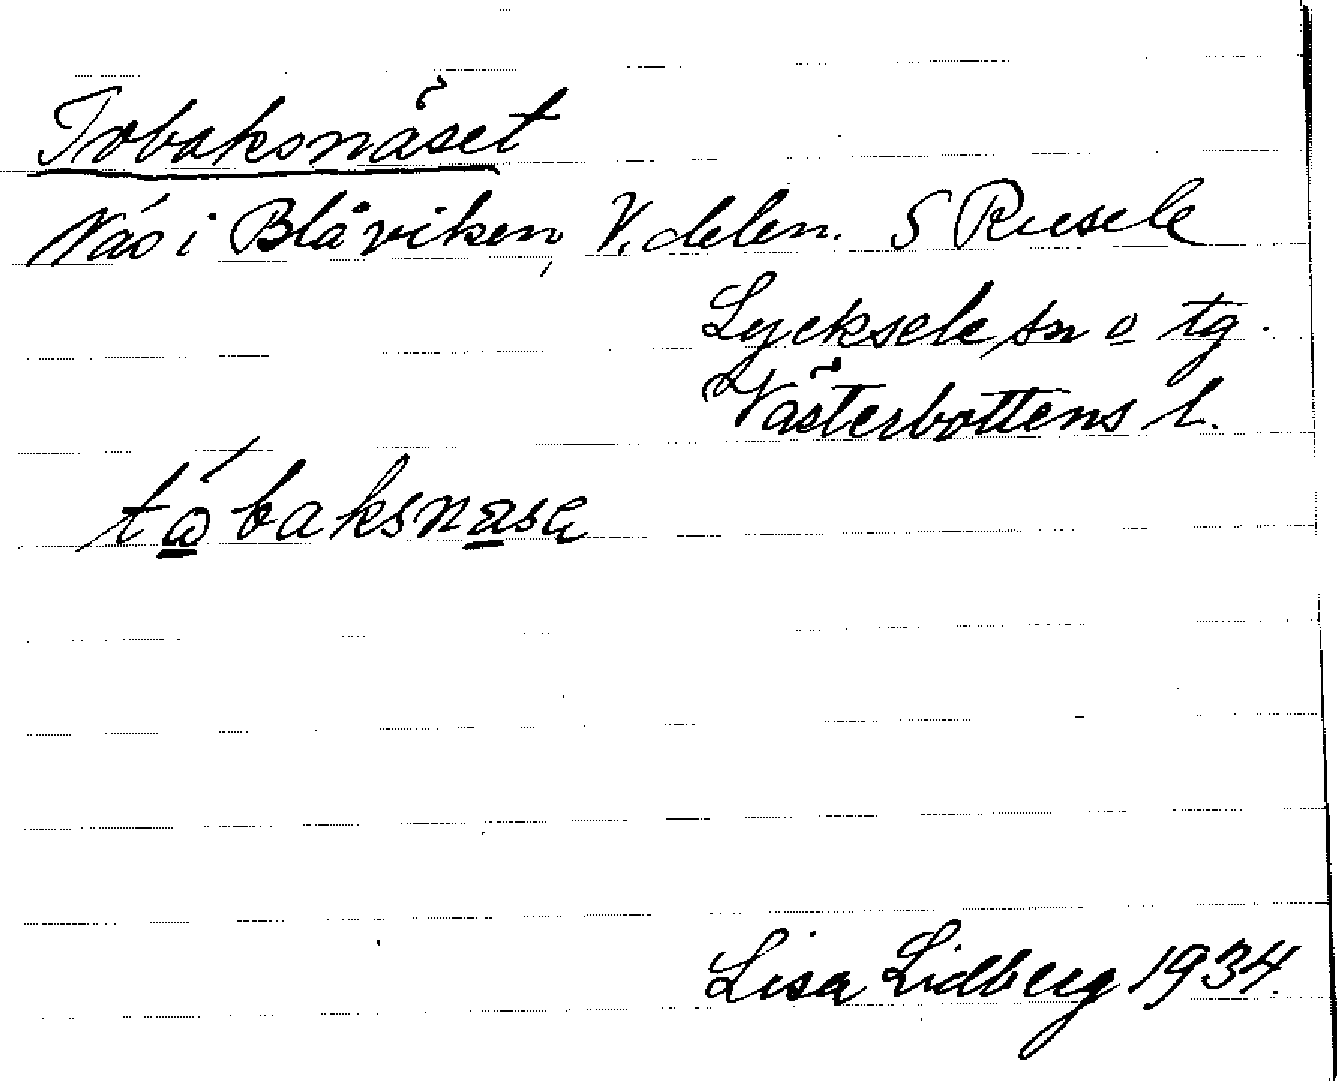 Tobaksnäset
Näs i Blåviken, V. delen. S Rusele
Lycksele sn o tg.
Västerbottens l.
tåbaksnasę
Lisa Lidberg 1934.